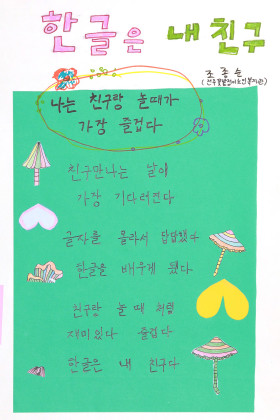 한글은 내 친구
조종순
나는 친구랑 놀때가
가장 즐겁다
친구만나는 날이
가장 기다려진다
글자를 몰라서 답답했다
한글을 배우게 됐다
친구랑 놀 때 처럼
재미있다 즐겁다
한글은 내 친구다